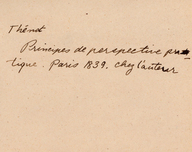 Thénot
Principes de perspective pra-
tique. Paris 1839. chez l'auteur